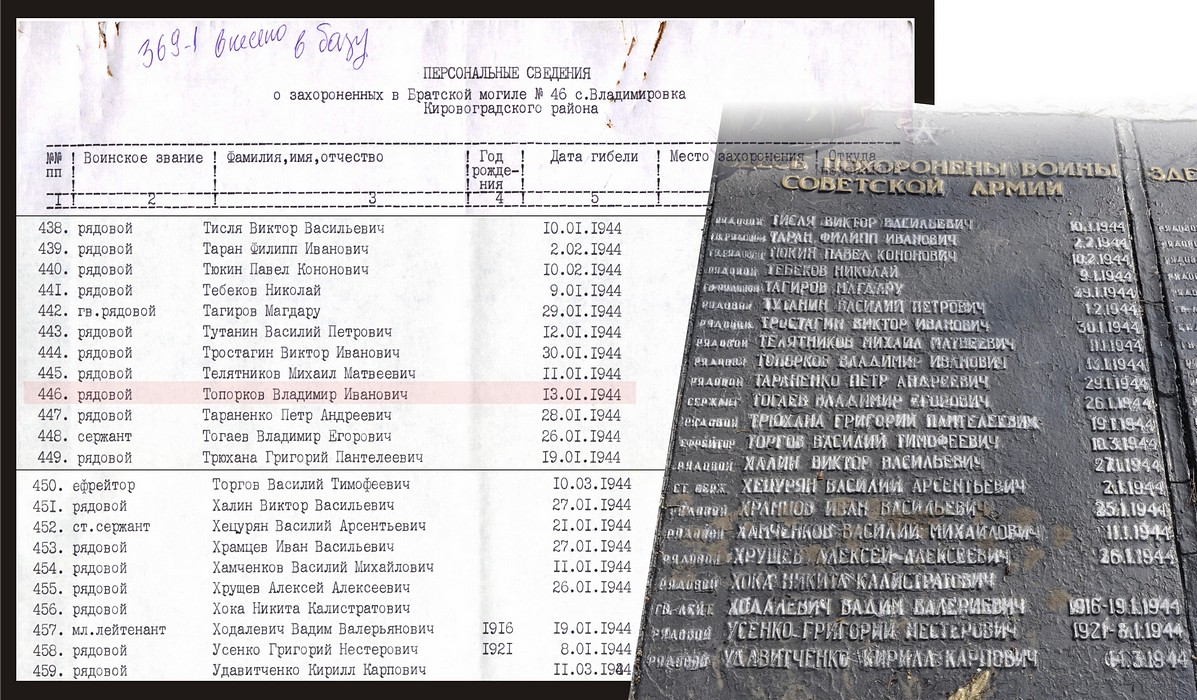 369-1 внесено в базу
ПЕРСОНАЛЬНЫЕ СВЕДЕНИЯ
о захороненных в Братской могиле № 46 с.Владимировка
Кировоградского района
№№ пп ! Воинское звание ! Фамилия,имя,отчество ! Год рожде-ния ! Дата гибели ! Место захоронения ! Откуда
I ! 2 ! 3 ! 4 ! 5 !
438. рядовой Тисля Виктор Васильевич I0.0I.I944
439. рядовой Таран Филипп Иванович 2.02.I944
440. рядовой Тюкин Павел Кононович I0.02.I944
44I. рядовой Тебеков Николай 9.0I.I944
442. гв.рядовой Тагиров Магдару 29.0I.I944
443. рядовой Тутанин Василий Петрович I2.0I.I944
444. рядовой Тростагин Виктор Иванович 30.0I.I944
445. рядовой Телятников Михаил Матвеевич II.0I.I944
446. рядовой Топорков Владимир Иванович I3.0I.I944
447. рядовой Тараненко Петр Андреевич 28.0I.I944
448. сержант Тогаев Владимир Егорович 26.0I.I944
449. рядовой Трюхана Григорий Пантелеевич I9.0I.I944
450. ефрейтор Торгов Василий Тимофеевич I0.03.I944
45I. рядовой Халин Виктор Васильевич 27.0I.I944
452. ст.сержант Хецурян Василий Арсентьевич 2I.0I.I944
453. рядовой Храмцев Иван Васильевич 27.0I.I944
454. рядовой Хамченков Василий Михайлович II.0I.I944
455. рядовой Хрущев Алексей Алексеевич 26.0I.I944
456. рядовой Хока Никита Калистратович
457. мл.лейтенант Ходалевич Вадим Валерьянович I9I6 I9.0I.I944
458. рядовой Усенко Григорий Нестерович I92I 8.0I.I944
459. рядовой Удавитченко Кирилл Карпович II.03.I944
ПОХОРОНЕНЫ ВОИНЫ
СОВЕТСКОЙ АРМИИ
РЯДОВОЙ ТИСЛЯ ВИКТОР ВАСИЛЬЕВИЧ 10.1.1944
ТАРАН ФИЛИПП ИВАНОВИЧ 2.2.1944
ТЮКИН ПАВЕЛ КОНОНОВИЧ 10.2.1944
РЯДОВОЙ ТЕБЕКОВ НИКОЛАЙ 9.1.1944
ТАГИРОВ МАГДАРУ 29.1.1944
РЯДОВОЙ ТУТАНИН ВАСИЛИЙ ПЕТРОВИЧ 1.2.1944
РЯДОВОЙ ТРОСТАГИН ВИКТОР ИВАНОВИЧ 30.1.1944
РЯДОВОЙ ТЕЛЯТНИКОВ МИХАИЛ МАТВЕЕВИЧ 11.1.1944
РЯДОВОЙ ТОПОРКОВ ВЛАДИМИР ИВАНОВИЧ 13.1.1944
РЯДОВОЙ ТАРАНЕНКО ПЕТР АНДРЕЕВИЧ 29.1.1944
СЕРЖАНТ ТОГАЕВ ВЛАДИМИР ЕГОРОВИЧ 26.1.1944
РЯДОВОЙ ТРЮХАНА ГРИГОРИЙ ПАНТЕЛЕЕВИЧ 19.1.1944
ЕФРЕЙТОР ТОРГОВ ВАСИЛИЙ ТИМОФЕЕВИЧ 10.3.1944
РЯДОВОЙ ХАЛИН ВИКТОР ВАСИЛЬЕВИЧ 27.1.1944
СТ. СЕРЖ. ХЕЦУРЯН ВАСИЛИЙ АРСЕНТЬЕВИЧ 2.1.1944
РЯДОВОЙ ХРАМЦОВ ИВАН ВАСИЛЬЕВИЧ 25.1.1944
РЯДОВОЙ ХАМЧЕНКОВ ВАСИЛИЙ МИХАЙЛОВИЧ 11.1.1944
РЯДОВОЙ ХРУЩЕВ АЛЕКСЕЙ АЛЕКСЕЕВИЧ 26.1.1944
РЯДОВОЙ ХОКА НИКИТА КАЛИСТРАТОВИЧ
ГВ. ЛЕЙТ. ХОДАЛЕВИЧ ВАДИМ ВАЛЕРИЕВИЧ 1916-19.1.1944
РЯДОВОЙ УСЕНКО ГРИГОРИЙ НЕСТЕРОВИЧ 1921-8.1.1944
РЯДОВОЙ УДАВИТЧЕНКО КИРИЛЛ КАРПОВИЧ 3.1944